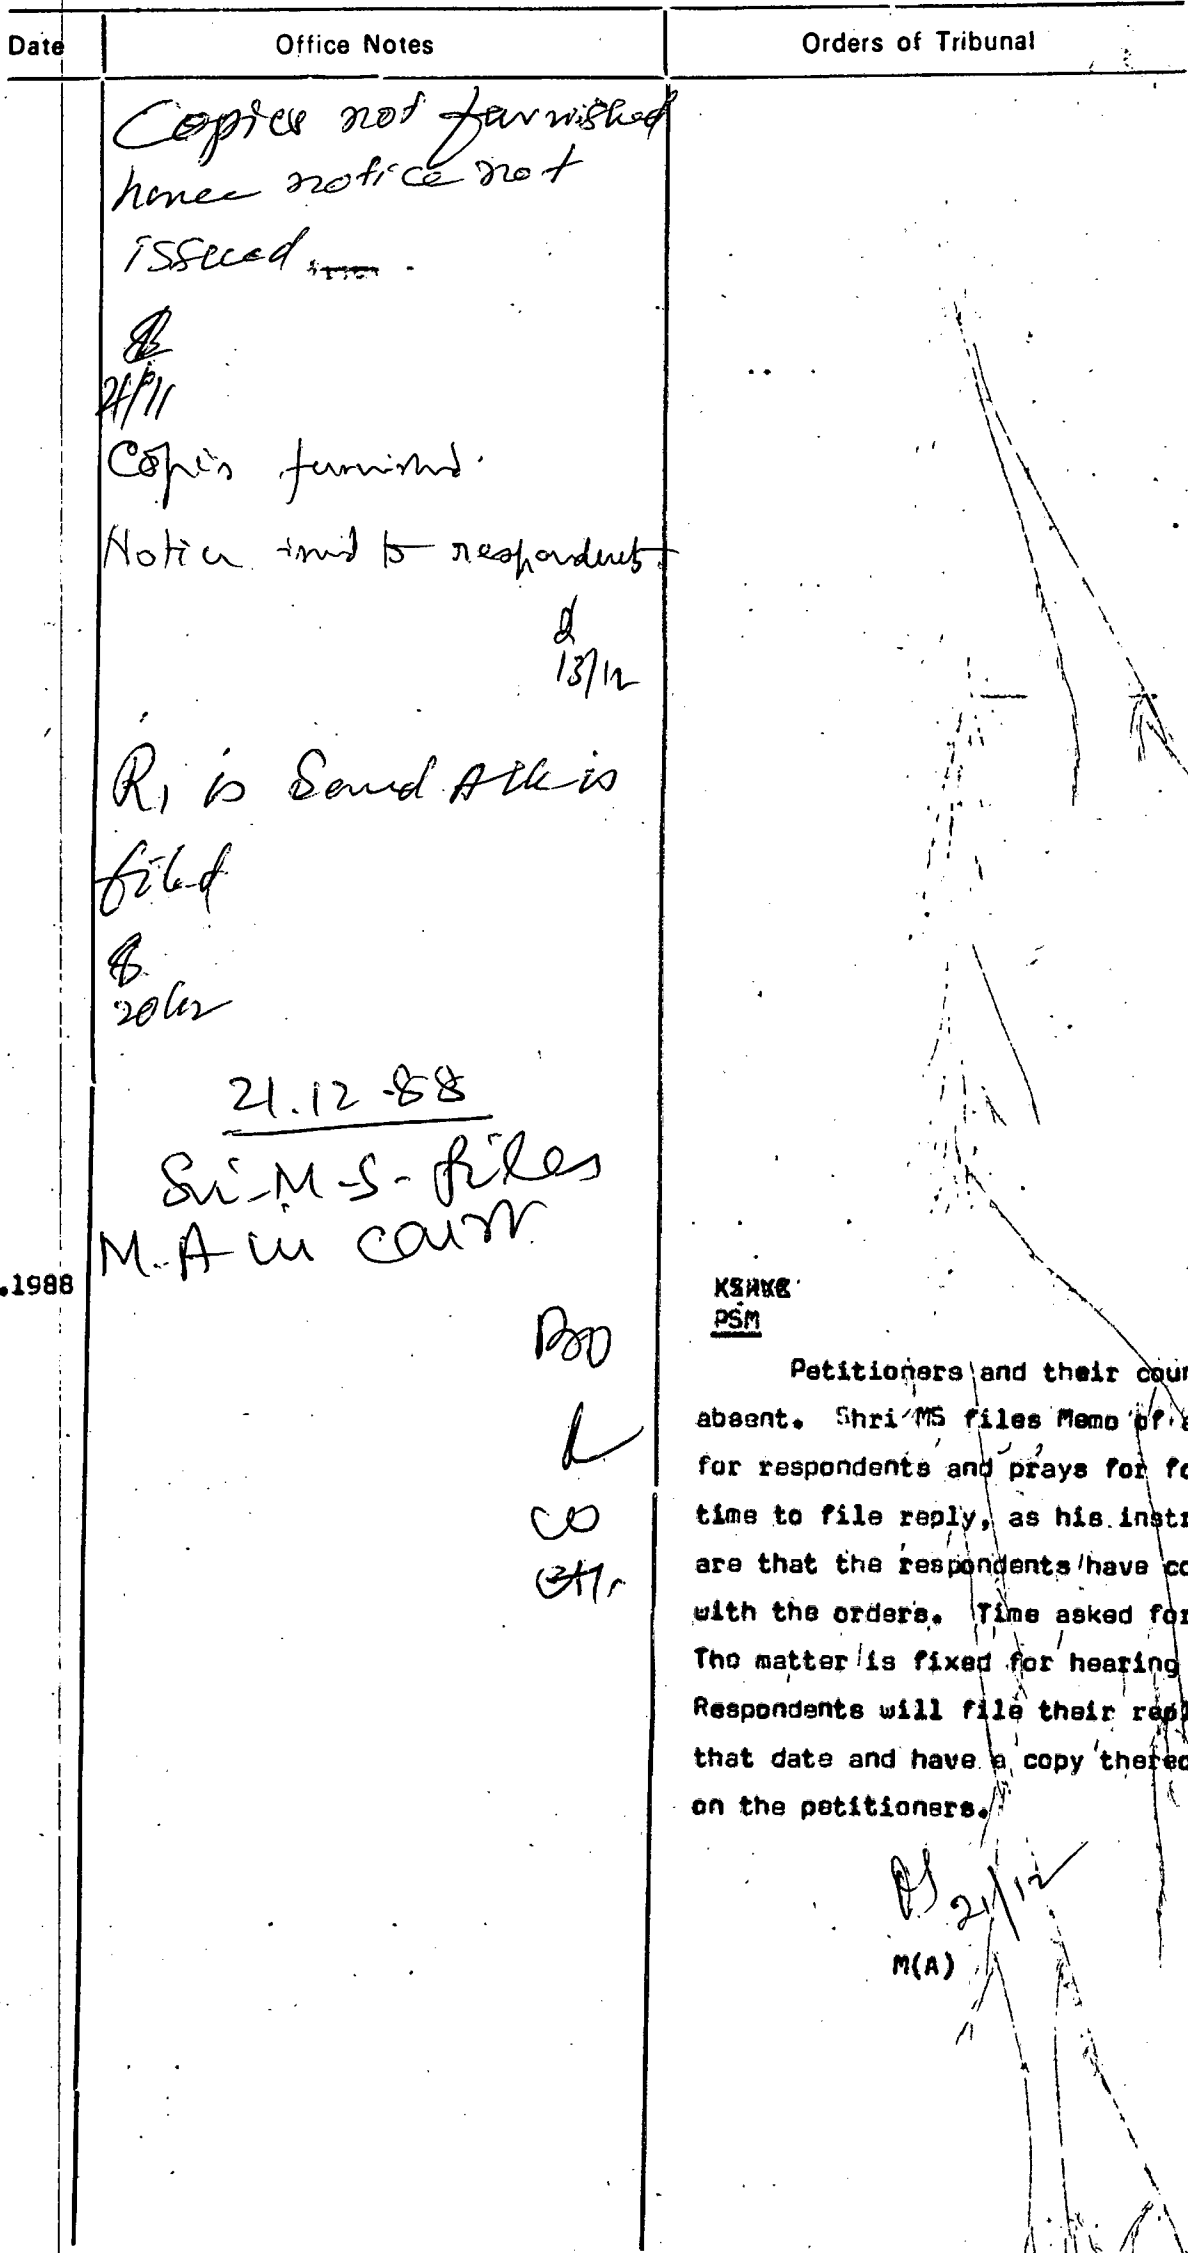 Date Office Notes Orders of Tribunal
Copies not furnished
hence notice not
issued
Copies furnished.
Notice issued to respondents
13/12
R1 is Served Ack is
filed
20/12
21.12.88
Sri-M-S-files
M.A in court
.1988
PSM
Petitioners and their coun
absent. Shri MS files Memo of a
for respondents and prays for fo
time to file reply, as his instr
are that the respondents have co
with the orders. Time asked for
The matter is fixed for hearing
Respondents will file their repl
that date and have a copy thereo
on the petitioners.
21/12
M(A)